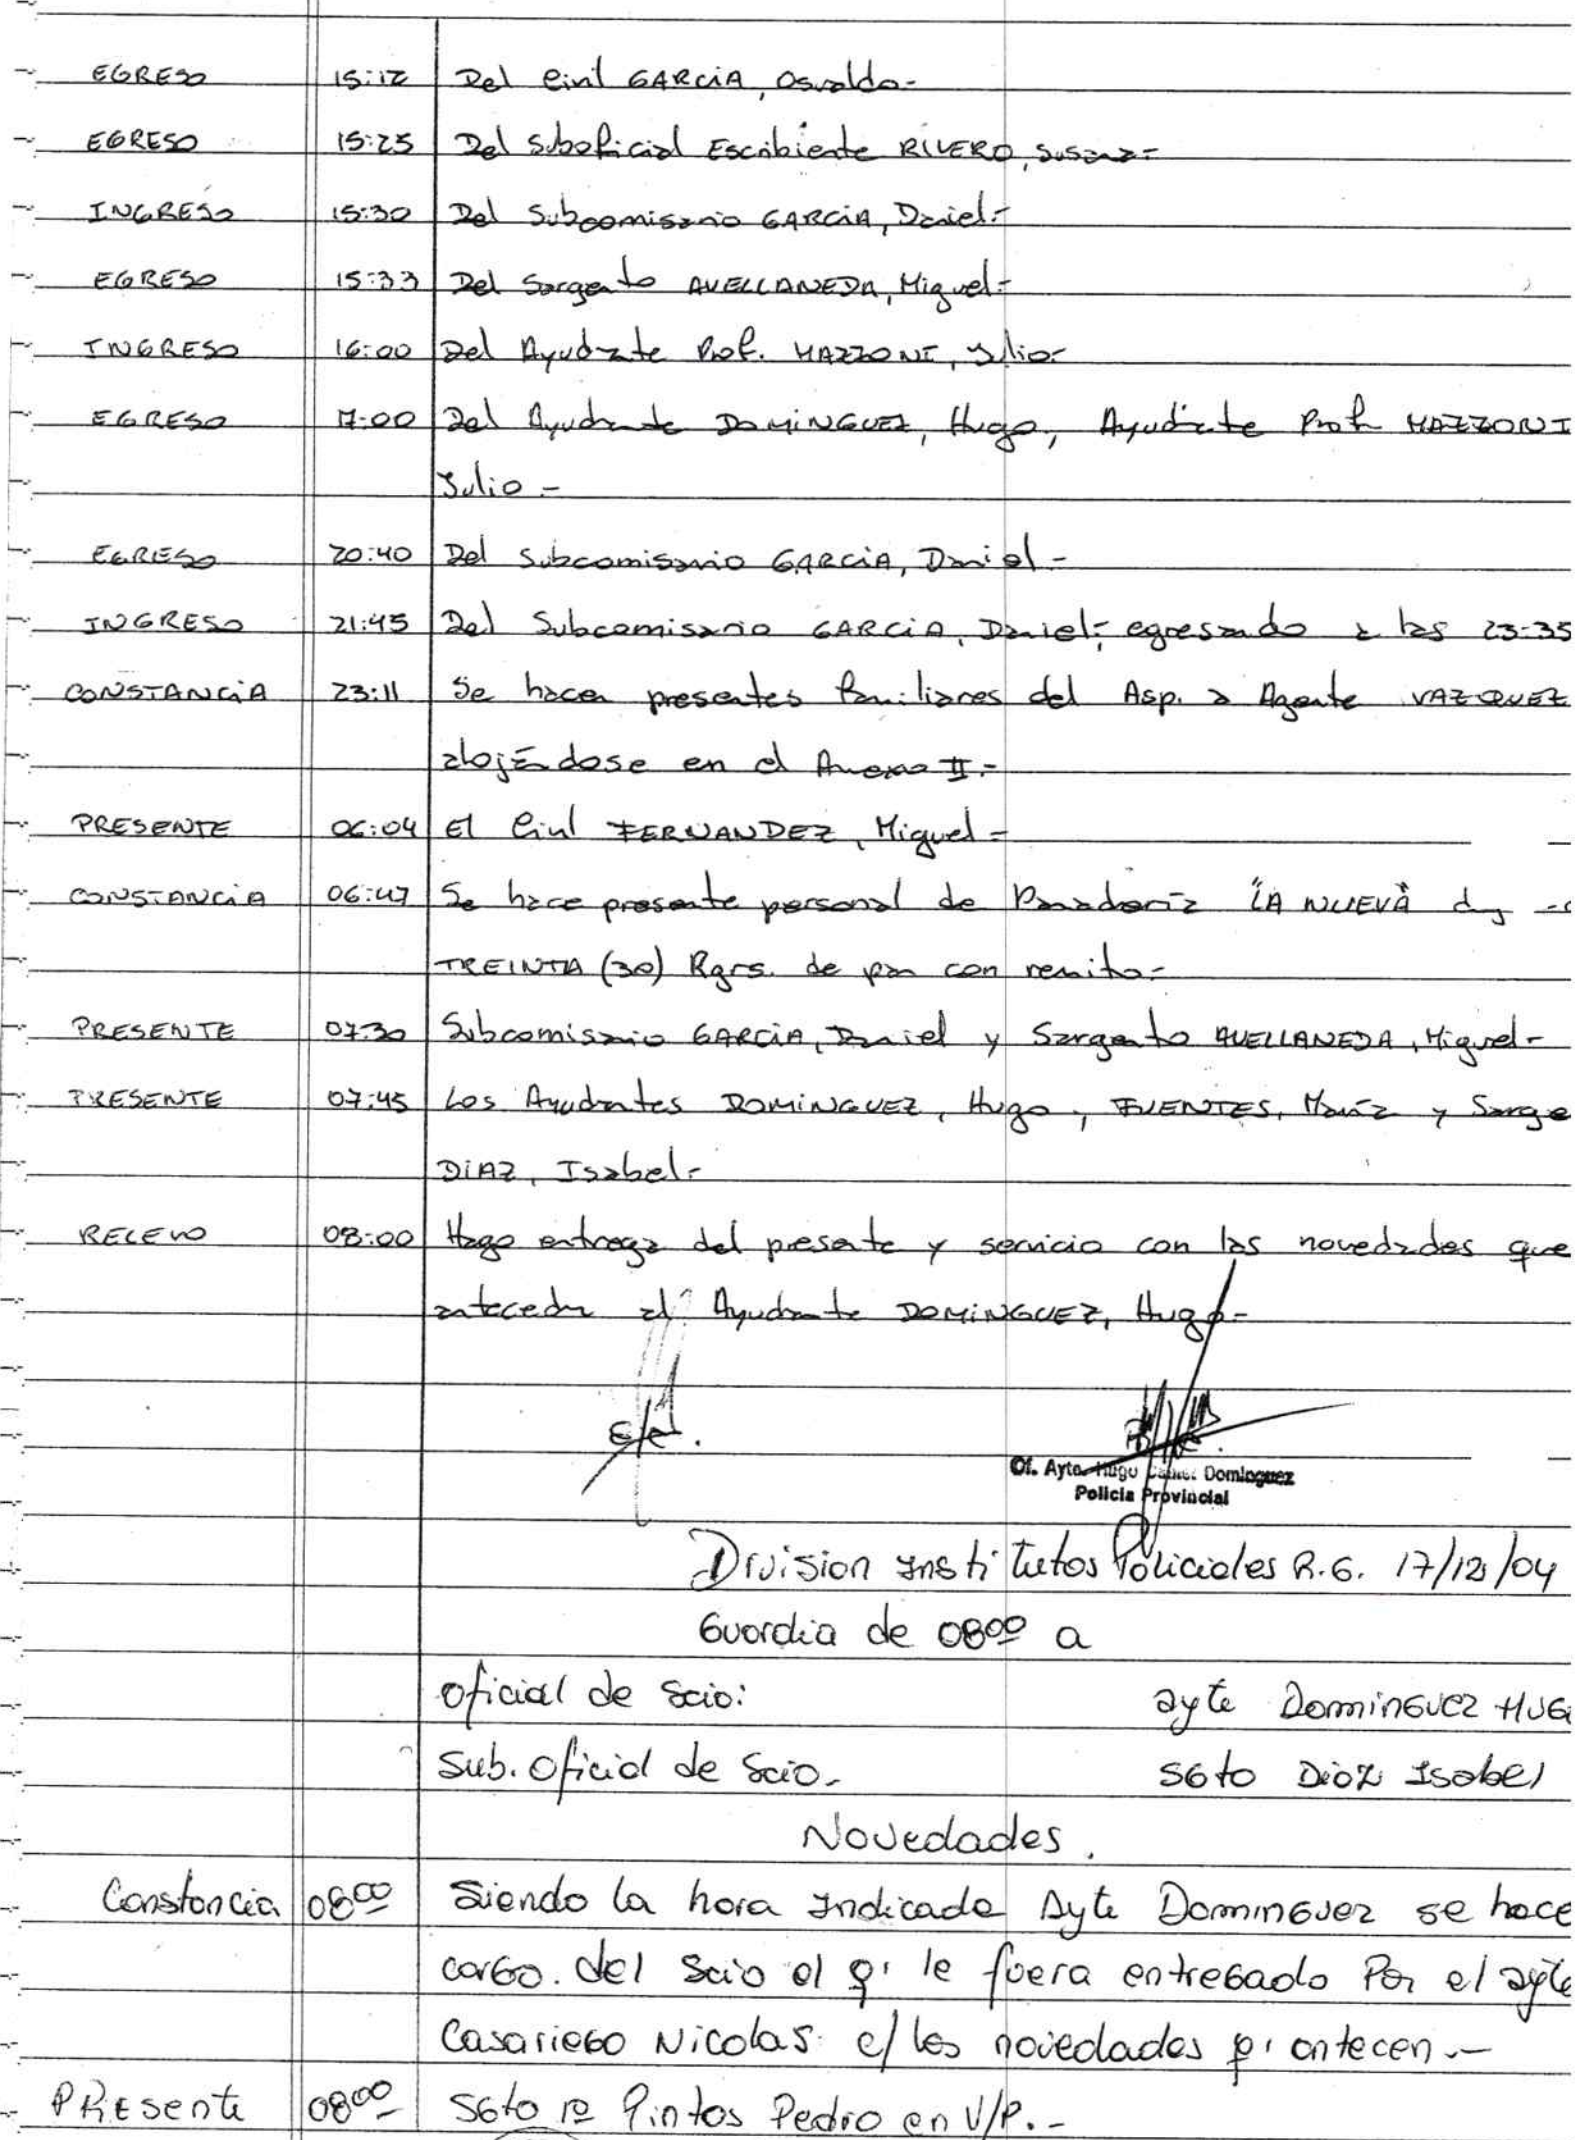 EGRESO 15:12 Del Civil GARCIA, Osvaldo.-
EGRESO 15:25 Del Suboficial Escribiente RIVERO, Susana-
INGRESO 15:30 Del Subcomisario GARCIA, Daniel.-
EGRESO 15:33 Del Sargento AVELLANEDA, Miguel.-
INGRESO 16:00 Del Ayudante Prof. MAZZONI, Julio.-
EGRESO 17:00 Del Ayudante DOMINGUEZ, Hugo, Ayudante Prof. MAZZONI
Julio.-
EGRESO 20:40 Del Subcomisario GARCIA, Daniel.-
INGRESO 21:45 Del Subcomisario GARCIA, Daniel; egresando a las 23:35
CONSTANCIA 23:11 Se hacen presentes familiares del Asp. a Agente VAZQUEZ
alojándose en el Anexo II.-
PRESENTE 06:04 El Civil FERNANDEZ, Miguel-
CONSTANCIA 06:47 Se hace presente personal de Panadería "LA NUEVA"
TREINTA (30) Kgrs. de pan con remito-
PRESENTE 07:30 Subcomisario GARCIA, Daniel y Sargento AVELLANEDA, Miguel-
PRESENTE 07:45 Los Ayudantes DOMINGUEZ, Hugo, FUENTES, María y Sarge
DIAZ, Isabel.-
RELEVO 08:00 Hago entrega del presente y servicio con las novedades que
anteceden al Ayudante DOMINGUEZ, Hugo-
Of. Ayte. Hugo Dominguez
Policia Provincial
Division Institutos Policiales R.G. 17/12/04
Guardia de 08ºº a
Oficial de Scio: ayte Dominguez HUG
Sub. Oficial de Scio.- SGto Diaz Isabel
Novedades.
Constancia 08ºº Siendo la hora Indicada Ayte Dominguez se hace
cargo. del Scio el q' le fuera entregado Por el ayte
Casariego Nicolas c/ las novedades q' antecen.-
PResente 08ºº SGto 1º Pintos Pedro en V/P.-